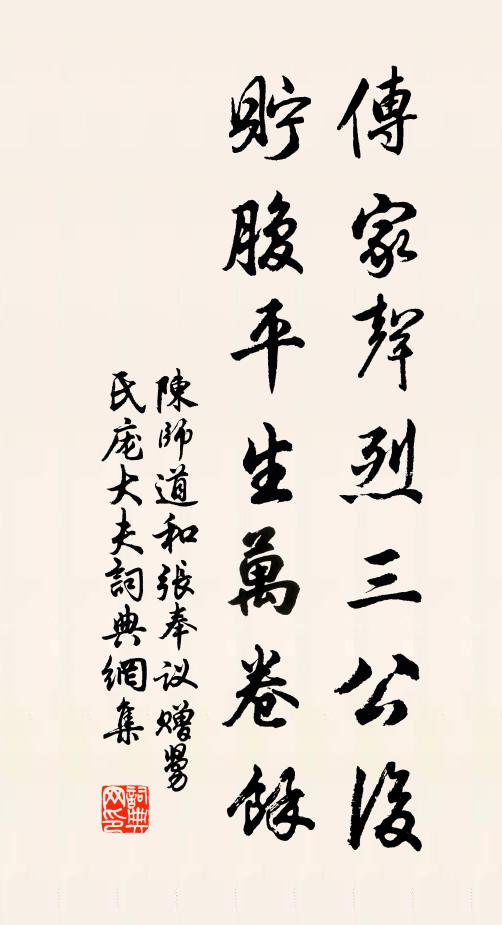 傳家聲烈三公後
貯腹平生萬卷餘
陳師道和張奉议贈舅
氏庞大夫詞典網集
詞典
网印